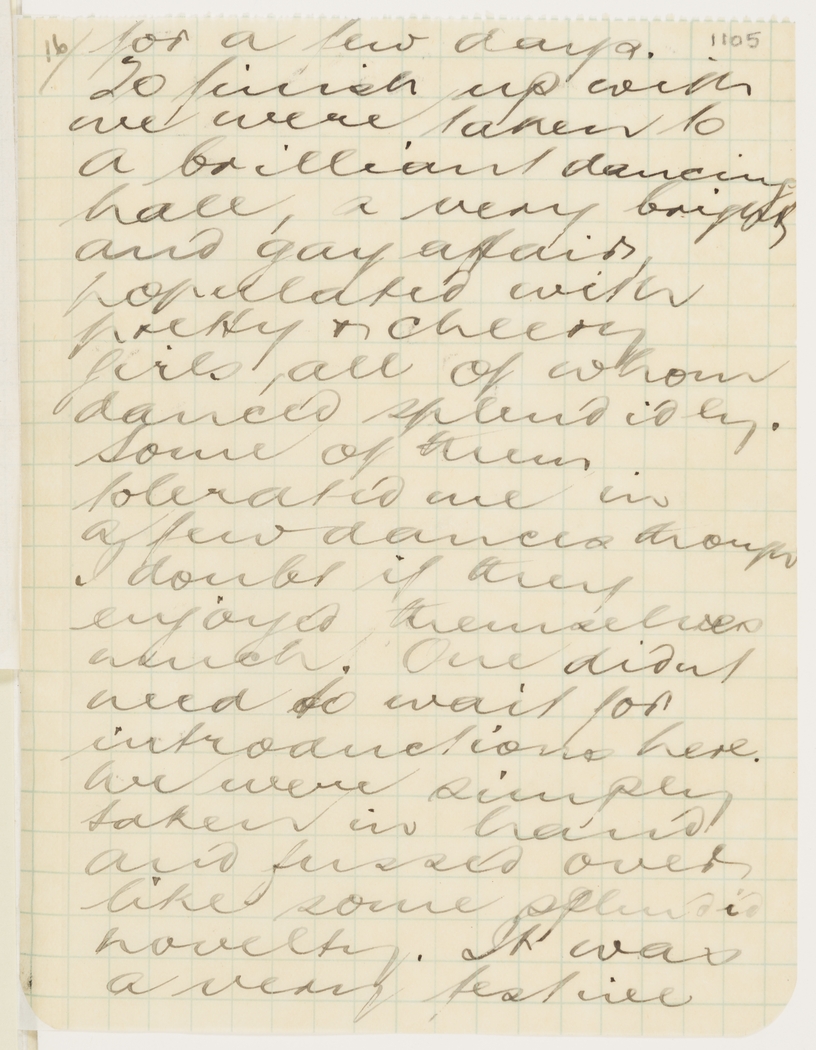 16/ for a few days. 1105
To finish up with
we were taken to
a brilliant dancing
hall, a very bright
and gay affair,
populated with
pretty & cheery
girls, all of whom
danced splendidly.
Some of them
tolerated me in
a few dances though
I doubt if they
enjoyed themselves
much. One didnt
need to wait for
introductions here.
We were simply
taken in hand
and fussed over
like some splendid
novelty. It was
a very festive